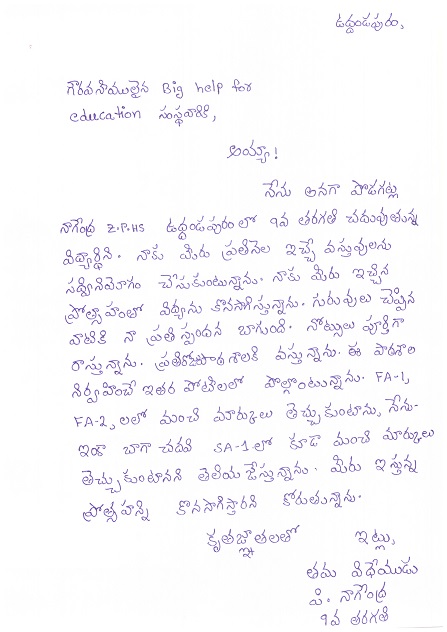 ఉద్దండపురం,
గౌరవనీయులైన Big help for
education సంస్థవారికి,
అయ్యా!
నేను అనగా పొడగట్ల
నాగేంద్ర Z.P.HS ఉద్దండపురం లో 9వ తరగతి చదువుతున్న
విద్యార్థిని. నాకు మీరు ప్రతినెల ఇచ్చే వస్తువులను
సద్వినియోగం చేసుకుంటున్నాను. నాకు మీరు ఇచ్చిన
ప్రోత్సాహంలో విద్యను కొనసాగిస్తున్నాను. గురువులు చెప్పిన
వాటికి నా ప్రతిస్పందన బాగుంది. నోట్సులు పూర్తిగా
రాస్తున్నాను. ప్రతిరోజు పాఠశాలకి వస్తున్నాను. ఈ పాఠశాల
నిర్వహించే ఇతర పోటీలలో పాల్గొంటున్నాను. FA-1,
FA-2, లలో మంచి మార్కులు తెచ్చుకుంటాను, నేను-
ఇంకా బాగా చదివి SA-1 లో కూడ మంచి మార్కులు
తెచ్చుకుంటానని తెలియజేస్తున్నాను. మీరు ఇస్తున్న
ప్రోత్సహన్ని కొనసాగిస్తారని కోరుతున్నాను.
కృతజ్ఞతలతో ఇట్లు,
తమ విధేయుడు
పి. నాగేంద్ర
9వ తరగతి